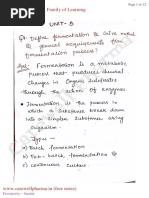 Family of Learning
Page 1 of 12
UNIT-5
Q1. Define fermentation & Give
general requirements for
fermentation process?
Ans:- Fermentation is a metabolic
process that produces chemical
changes in organic substrates
through the action of enzymes.
• Fermentation is the process in
which a substance breaks down
into a simpler substance
organism.
Types :-
a) Batch fermentation
b) Fed- batch fermentation &
c) continuous culture.
www.carewellpharma.in (free notes)